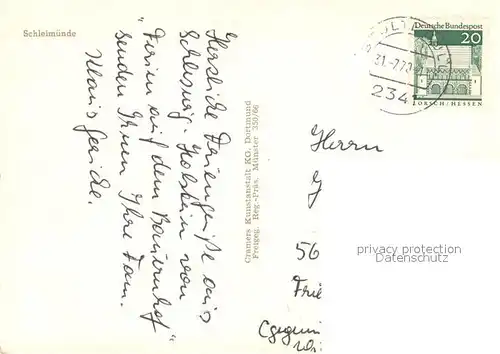 Schleimünde
Herzliche Feriengrüße aus
Schleswig-Holstein von
"Ferien auf dem Bauernhof"
senden Ihnen Ihre Fam.
Klaus
Cramers Kunstanstalt KG, Dortmund
Freigeg. Reg.-Präs. Münster 350/66
Deutsche Bundespost
20
LORSCH/HESSEN
234
Herrn
56
privacy protection
Datenschutz